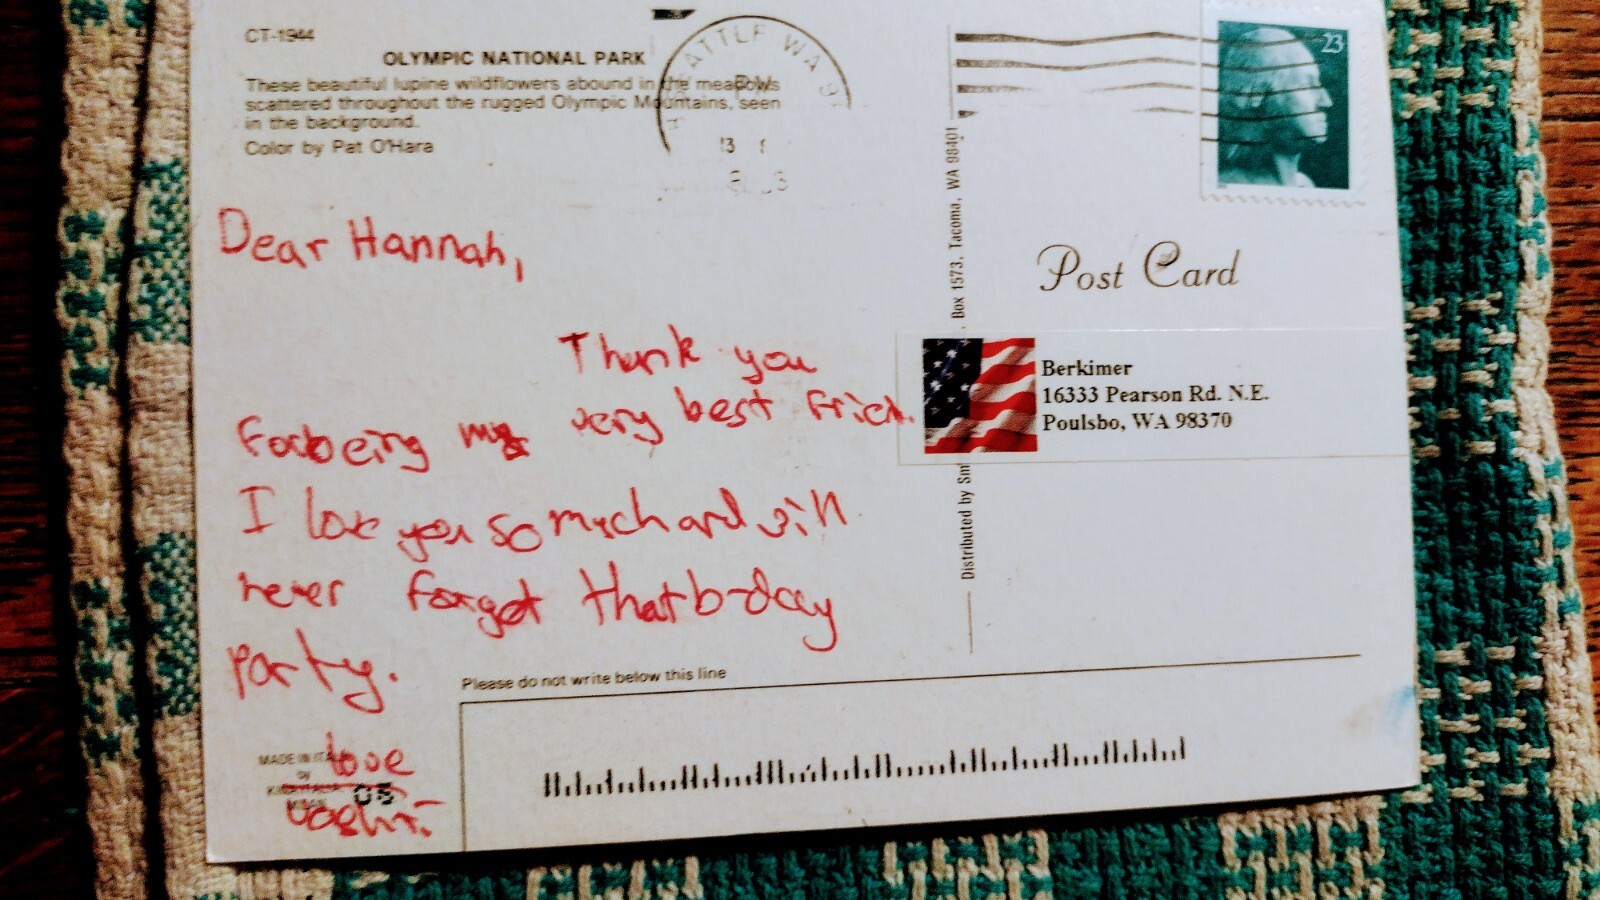 CT-1944
OLYMPIC NATIONAL PARK
These beautiful lupine wildflowers abound in the meadows
scattered throughout the rugged Olympic Mountains, seen
in the background.
Color by Pat O'Hara
ATTLE WA 98
PM
23
Dear Hannah,
Thank you
for being my very best frien.
I love you so much and will
never forget that b-day
party.
love
Post Card
Berkimer
16333 Pearson Rd. N.E.
Poulsbo, WA 98370
Distributed by Smi
, Box 1573, Tacoma, WA 98401
Please do not write below this line
MADE IN ITA
05